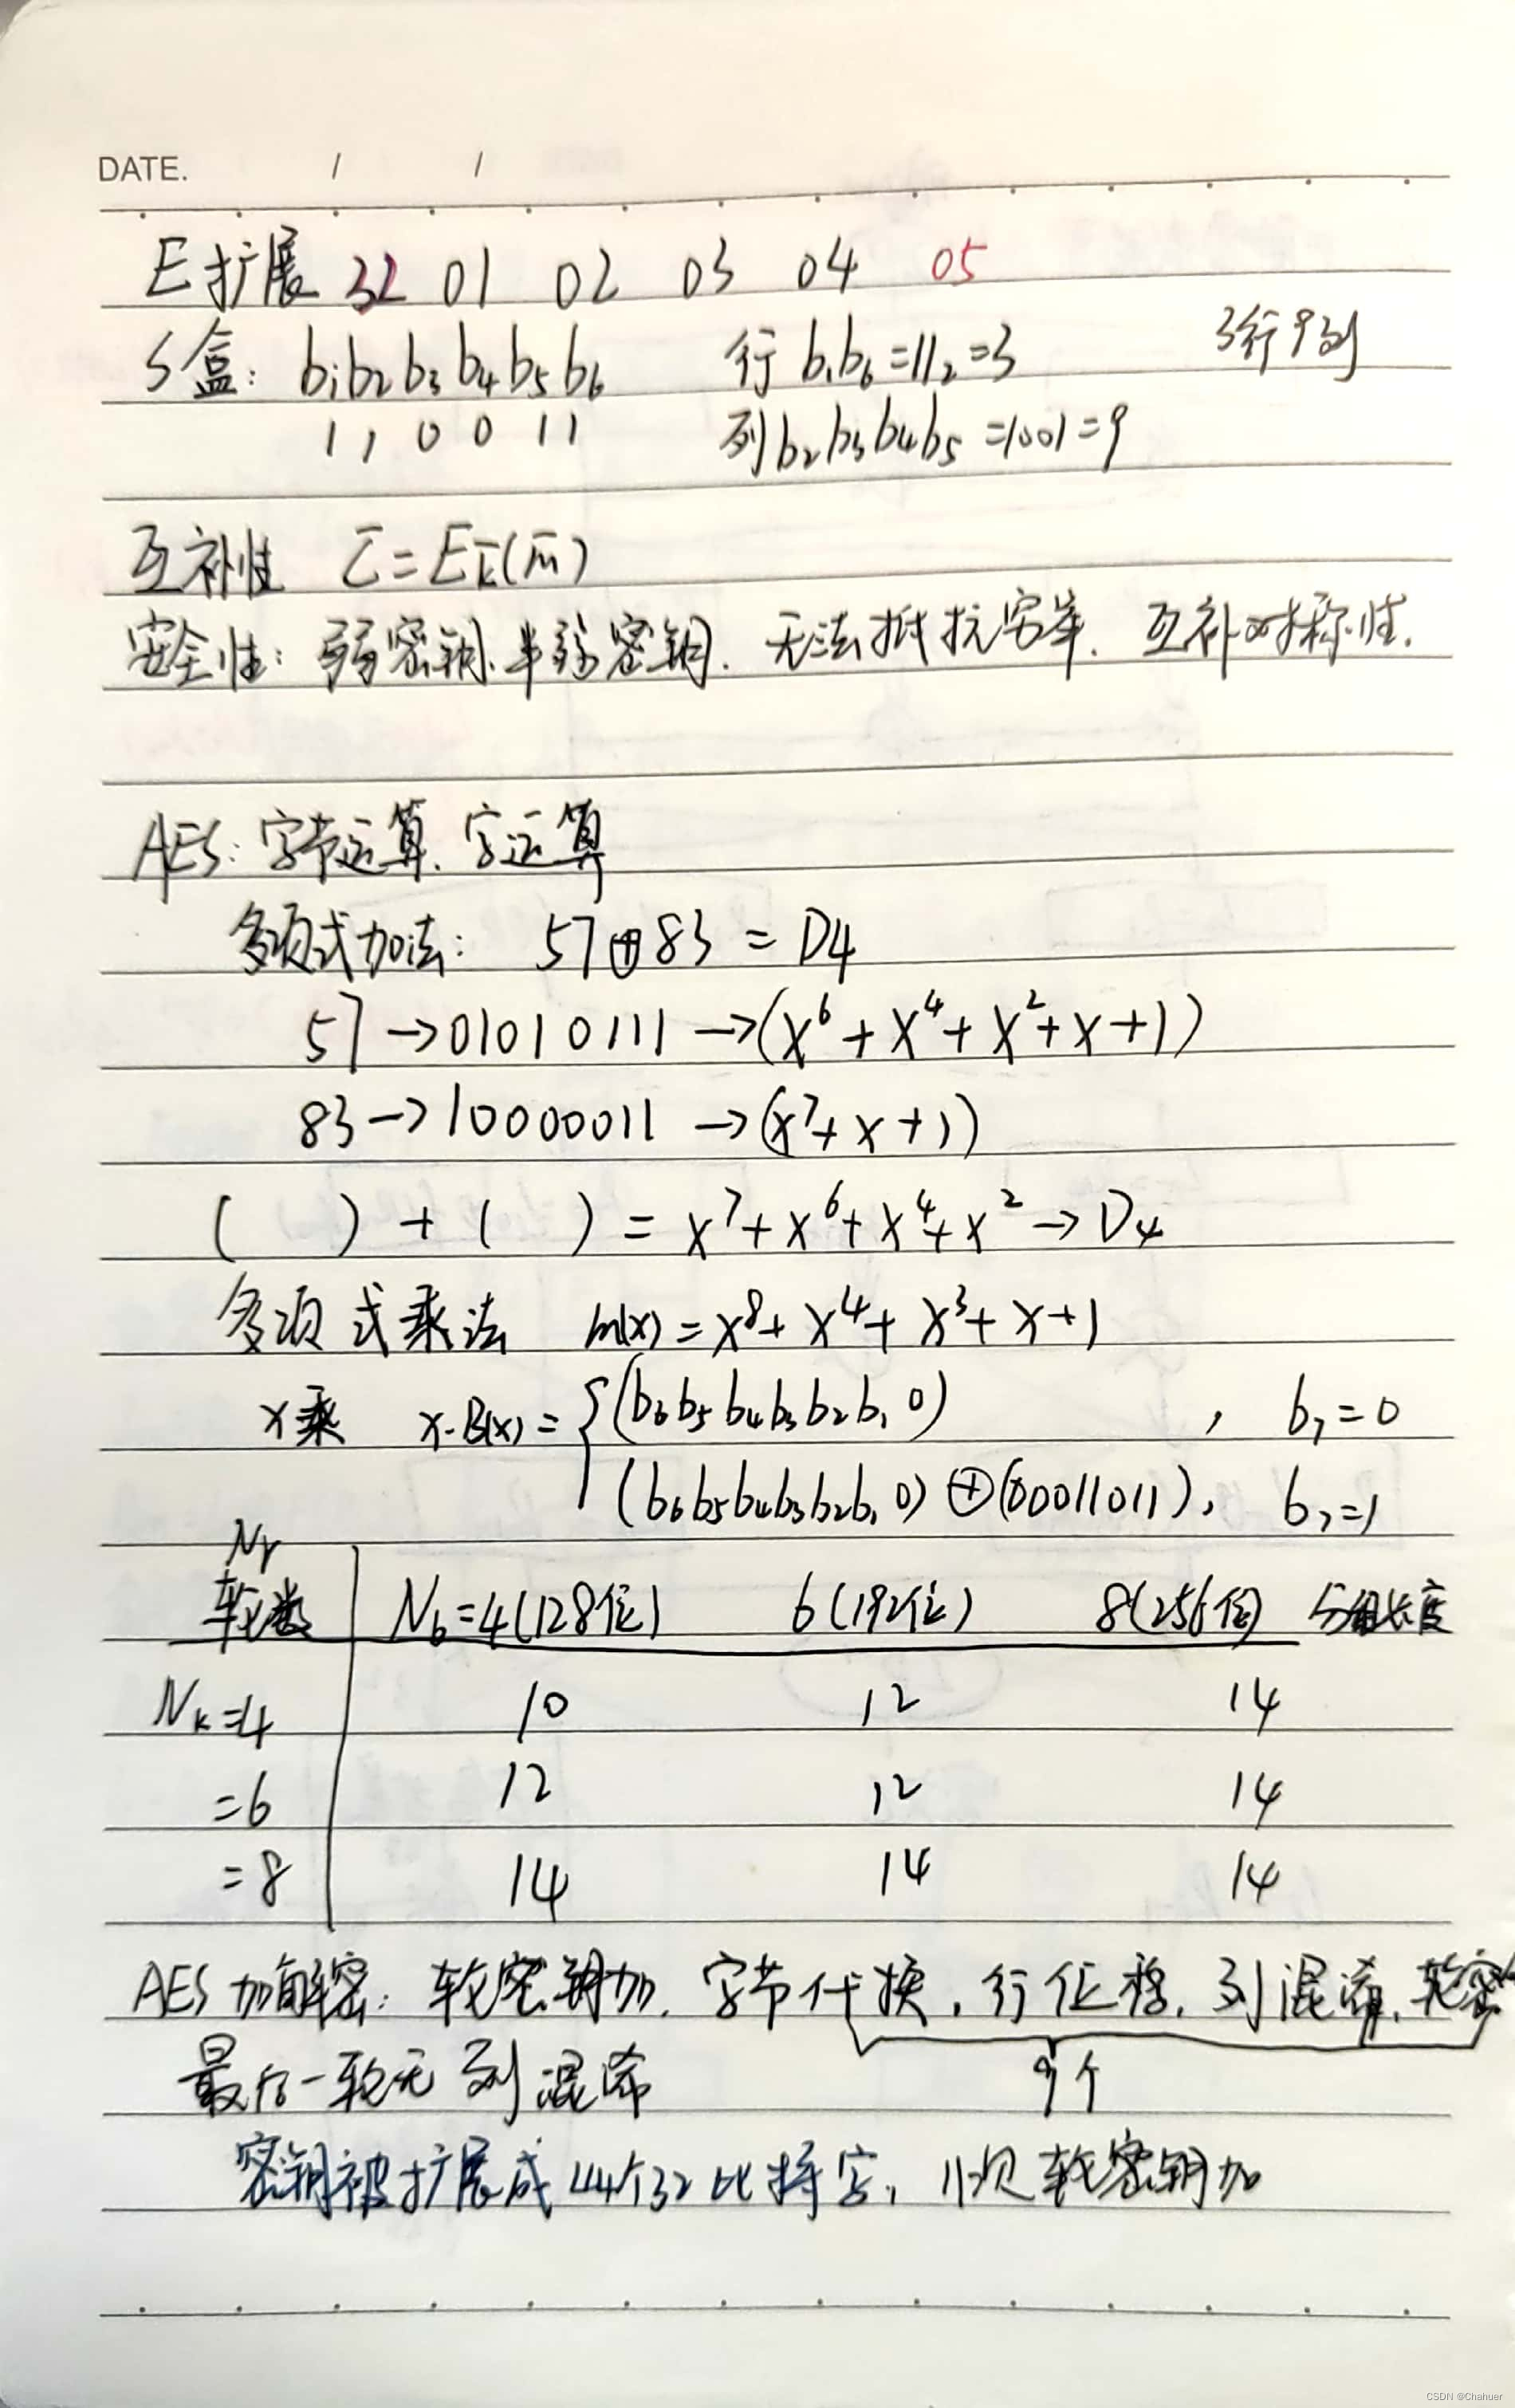 DATE. / /
E扩展 32 01 02 03 04 05
S盒: b₁b₂b₃b₄b₅b₆ 行 b₁b₆=11₂=3 3行9列
1 1 0 0 1 1 列b₂b₃b₄b₅=1001=9
互补性 C̅=E_k̅(m̅)
安全性: 弱密钥、半弱密钥. 无法抵抗穷举. 互补对称性.
AES: 字节运算. 字运算
多项式加法: 57⊕83 = D4
57→01010111→(x⁶+x⁴+x²+x+1)
83→10000011→(x⁷+x+1)
( ) + ( ) = x⁷+x⁶+x⁴+x²→D4
多项式乘法 m(x)=x⁸+x⁴+x³+x+1
x乘 x·B(x)={(b₆b₅b₄b₃b₂b₁0) , b₇=0
(b₆b₅b₄b₃b₂b₁0)⊕(00011011), b₇=1
Nr
轮数 Nb=4(128位) 6(192位) 8(256位) 分组长度
Nk=4 10 12 14
=6 12 12 14
=8 14 14 14
AES加解密: 轮密钥加. 字节代换, 行位移. 列混淆. 轮密
最后一轮无列混淆 9个
密钥被扩展成44个32比特字, 11次轮密钥加
CSDN @Chahuer